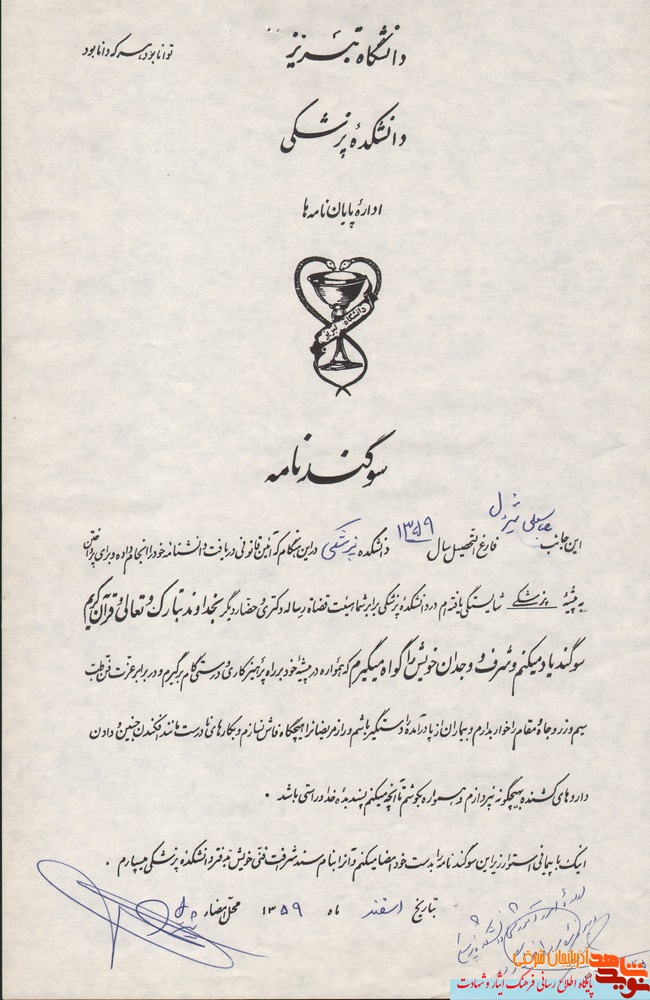 دانشگاه تبریز
توانا بود هر که دانا بود
دانشکدهٔ پزشکی
ادارهٔ پایان نامه ها
دانشگاه تبریز
سوگند نامه
این جانب عباسعلی شیردل فارغ التحصیل سال ۱۳۵۹ دانشکده پزشکی در این هنگام که آئین قانونی دریافت دانشنامه خود را انجام داده و برای پرداختن
به پیشهٔ پزشکی شایستگی یافته‌ام در دانشکدهٔ پزشکی برابر شما هیئت قضاة رساله دکتری و حضار دیگر بخداوند تبارک و تعالی و قرآن کریم
سوگند یاد میکنم و شرف و وجدان خویش را گواه میگیرم که همواره در پیشهٔ خود بر راه پرهیزکاری و درستی گام برگیرم و در برابر عزت فن طب
سیم و زر و جاه و مقام را خوار بدارم و بیماران از پا درآمده را دستگیر باشم و راز مریضان را هیچگاه فاش نسازم و بکارهای نادرست مانند افکندن جنین و دادن
داروهای کشنده بهیچگونه نپردازم و همواره بکوشم تا آنچه میکنم پسندیدهٔ خدا و راستی باشد .
اینک با پیمانی استوار زیر این سوگند نامه را بدست خود امضا میکنم و آنرا بنام سند شرافت فنی خویش بدفتر دانشکدهٔ پزشکی میسپارم .
بتاریخ اسفند ماه ۱۳۵۹ محل امضاء
نوید شاهد آذربایجان شرقی
پایگاه اطلاع رسانی فرهنگ ایثار و شهادت